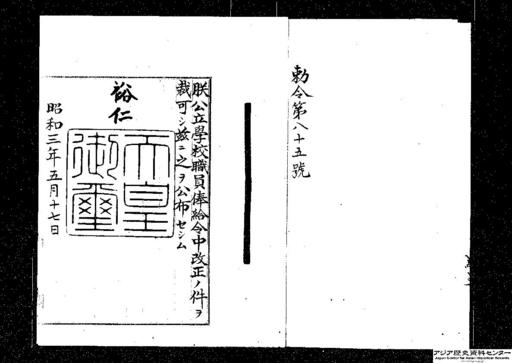 勅令第八十五號
朕公立學校職員俸給令中改正ノ件ヲ
裁可シ茲ニ之ヲ公布セシム
裕仁
天皇
御璽
昭和三年五月十七日
アジア歴史資料センター
Japan Center for Asian Historical Records